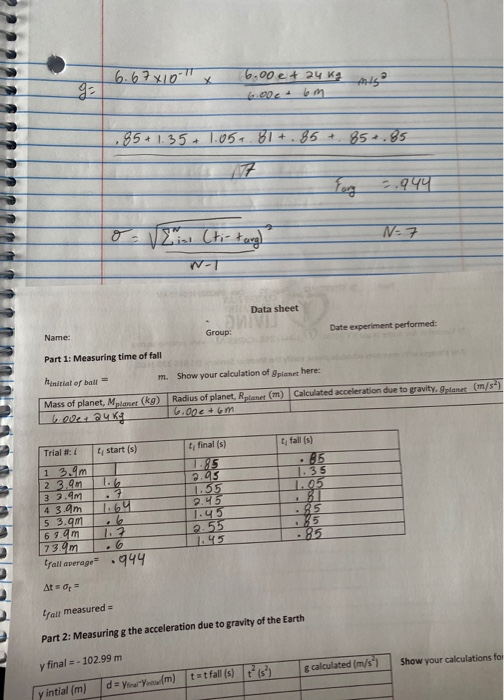 g= 6.67x10⁻¹¹ x 6.00e+24 kg m/s²
6.00e+6m
.85 + 1.35 + 1.05 + .81 + .85 + .85 + .85
7
tavg = .944
σ = √Σᴺi=1 (ti - tavg)² N=7
N-1
Data sheet
Name: Group: Date experiment performed:
Part 1: Measuring time of fall
hinitial of ball = m. Show your calculation of gplanet here:
Mass of planet, Mplanet (kg) Radius of planet, Rplanet (m) Calculated acceleration due to gravity, gplanet (m/s²)
6.00e+24kg 6.00e+6m
Trial #: i ti start (s) ti final (s) ti fall (s)
1 3.9m 1 1.85 .85
2 3.9m 1.6 2.95 1.35
3 3.9m .7 1.55 1.05
4 3.9m 1.64 2.45 .81
5 3.9m .6 1.45 .85
6 3.9m 1.7 2.55 .85
7 3.9m .6 1.45 .85
tfall average= .944
Δt = σt =
tfall measured =
Part 2: Measuring g the acceleration due to gravity of the Earth
y final = - 102.99 m
y intial (m) d = yfinal-yinitial(m) t = t fall (s) t² (s²) g calculated (m/s²) Show your calculations for